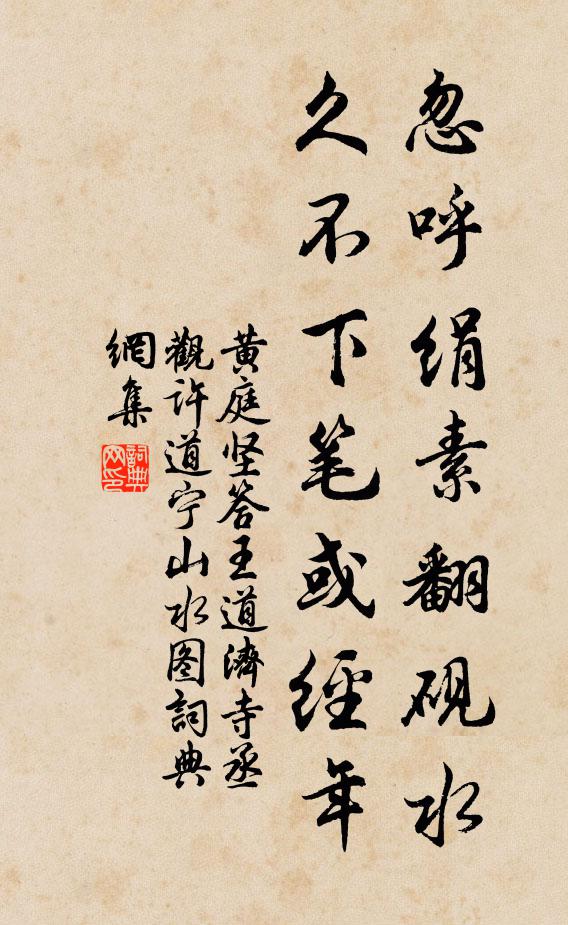 忽呼绢素翻砚水
久不下笔或经年
黄庭坚答王道濟寺丞
觀许道宁山水图詞典
網集
詞典
网印